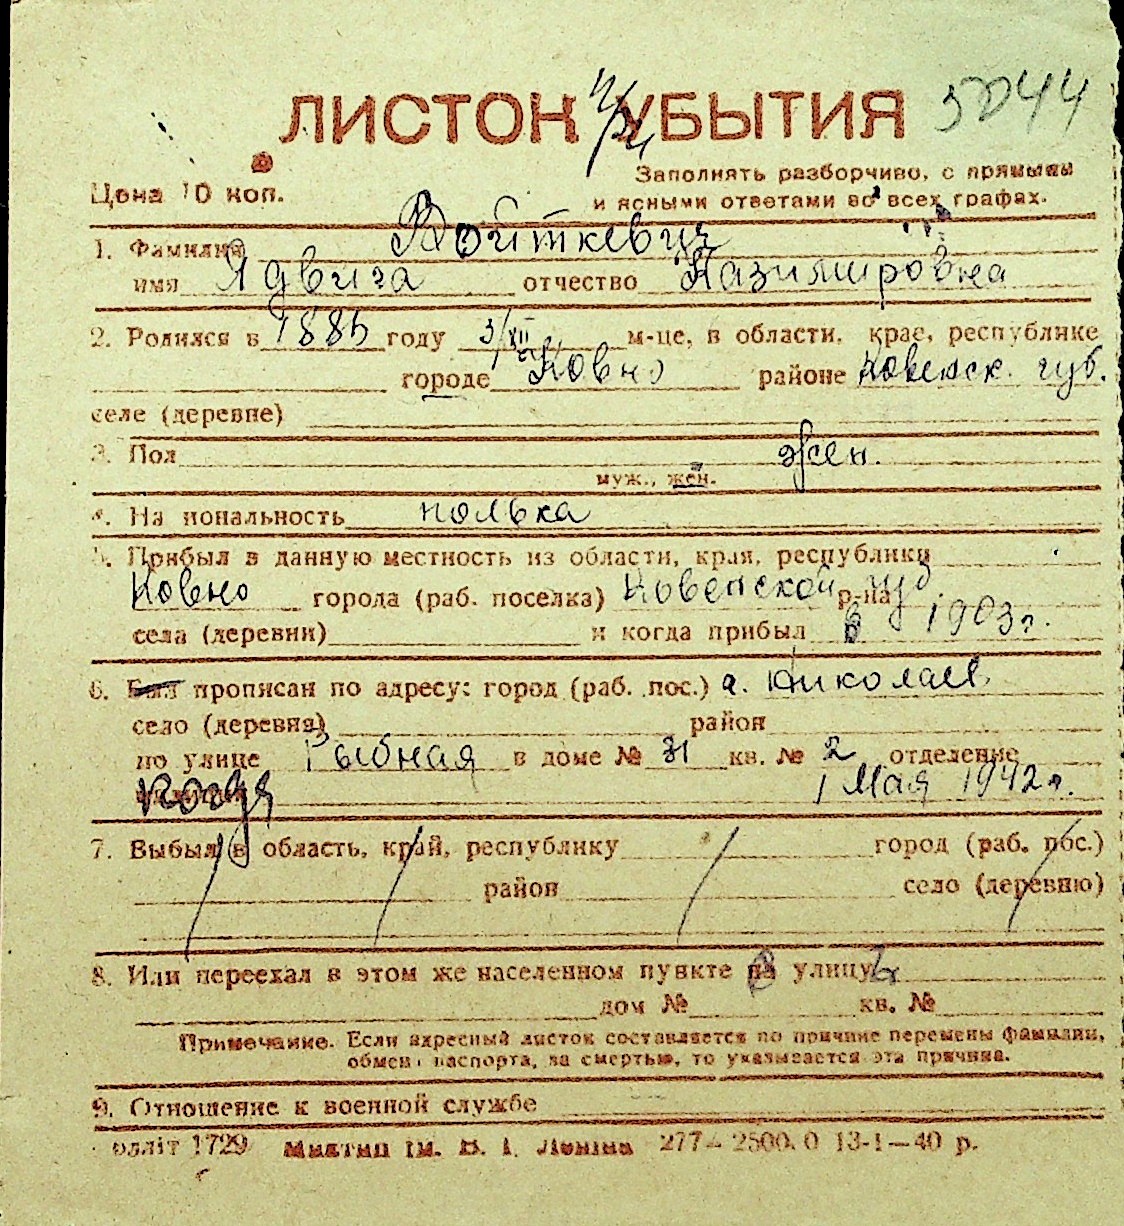 5044
ЛИСТОК УБЫТИЯ
Цена 10 коп.
Заполнять разборчиво, с прямыми
и ясными ответами во всех графах.
1. Фамилия Войткевич
имя Ядвига отчество Казимировна
2. Родился в 1885 году 3/XII м-це, в области, крае, республике
городе Ковно районе Ковенск. губ.
селе (деревне)
3. Пол жен.
муж., жен.
4. Национальность полька
5. Прибыл в данную местность из области, края, республики
Ковно города (раб. поселка) Ковенской губ р-на
села (деревни) и когда прибыл в 1903 г.
6. Был прописан по адресу: город (раб. пос.) г. Николаев
село (деревня) район
по улице Рыбная в доме № 31 кв. № 2 отделение
когда 1 Мая 1942 г.
7. Выбыл в область, край, республику город (раб. пос.)
район село (деревню)
8. Или переехал в этом же населенном пункте на улицу
дом № кв. №
Примечание. Если адресный листок составляется по причине перемены фамилии,
обмена паспорта, за смертью, то указывается эта причина.
9. Отношение к военной службе
олліт 1729 Миктип ім. В. І. Леніна 277— 2500.0 13-1—40 р.